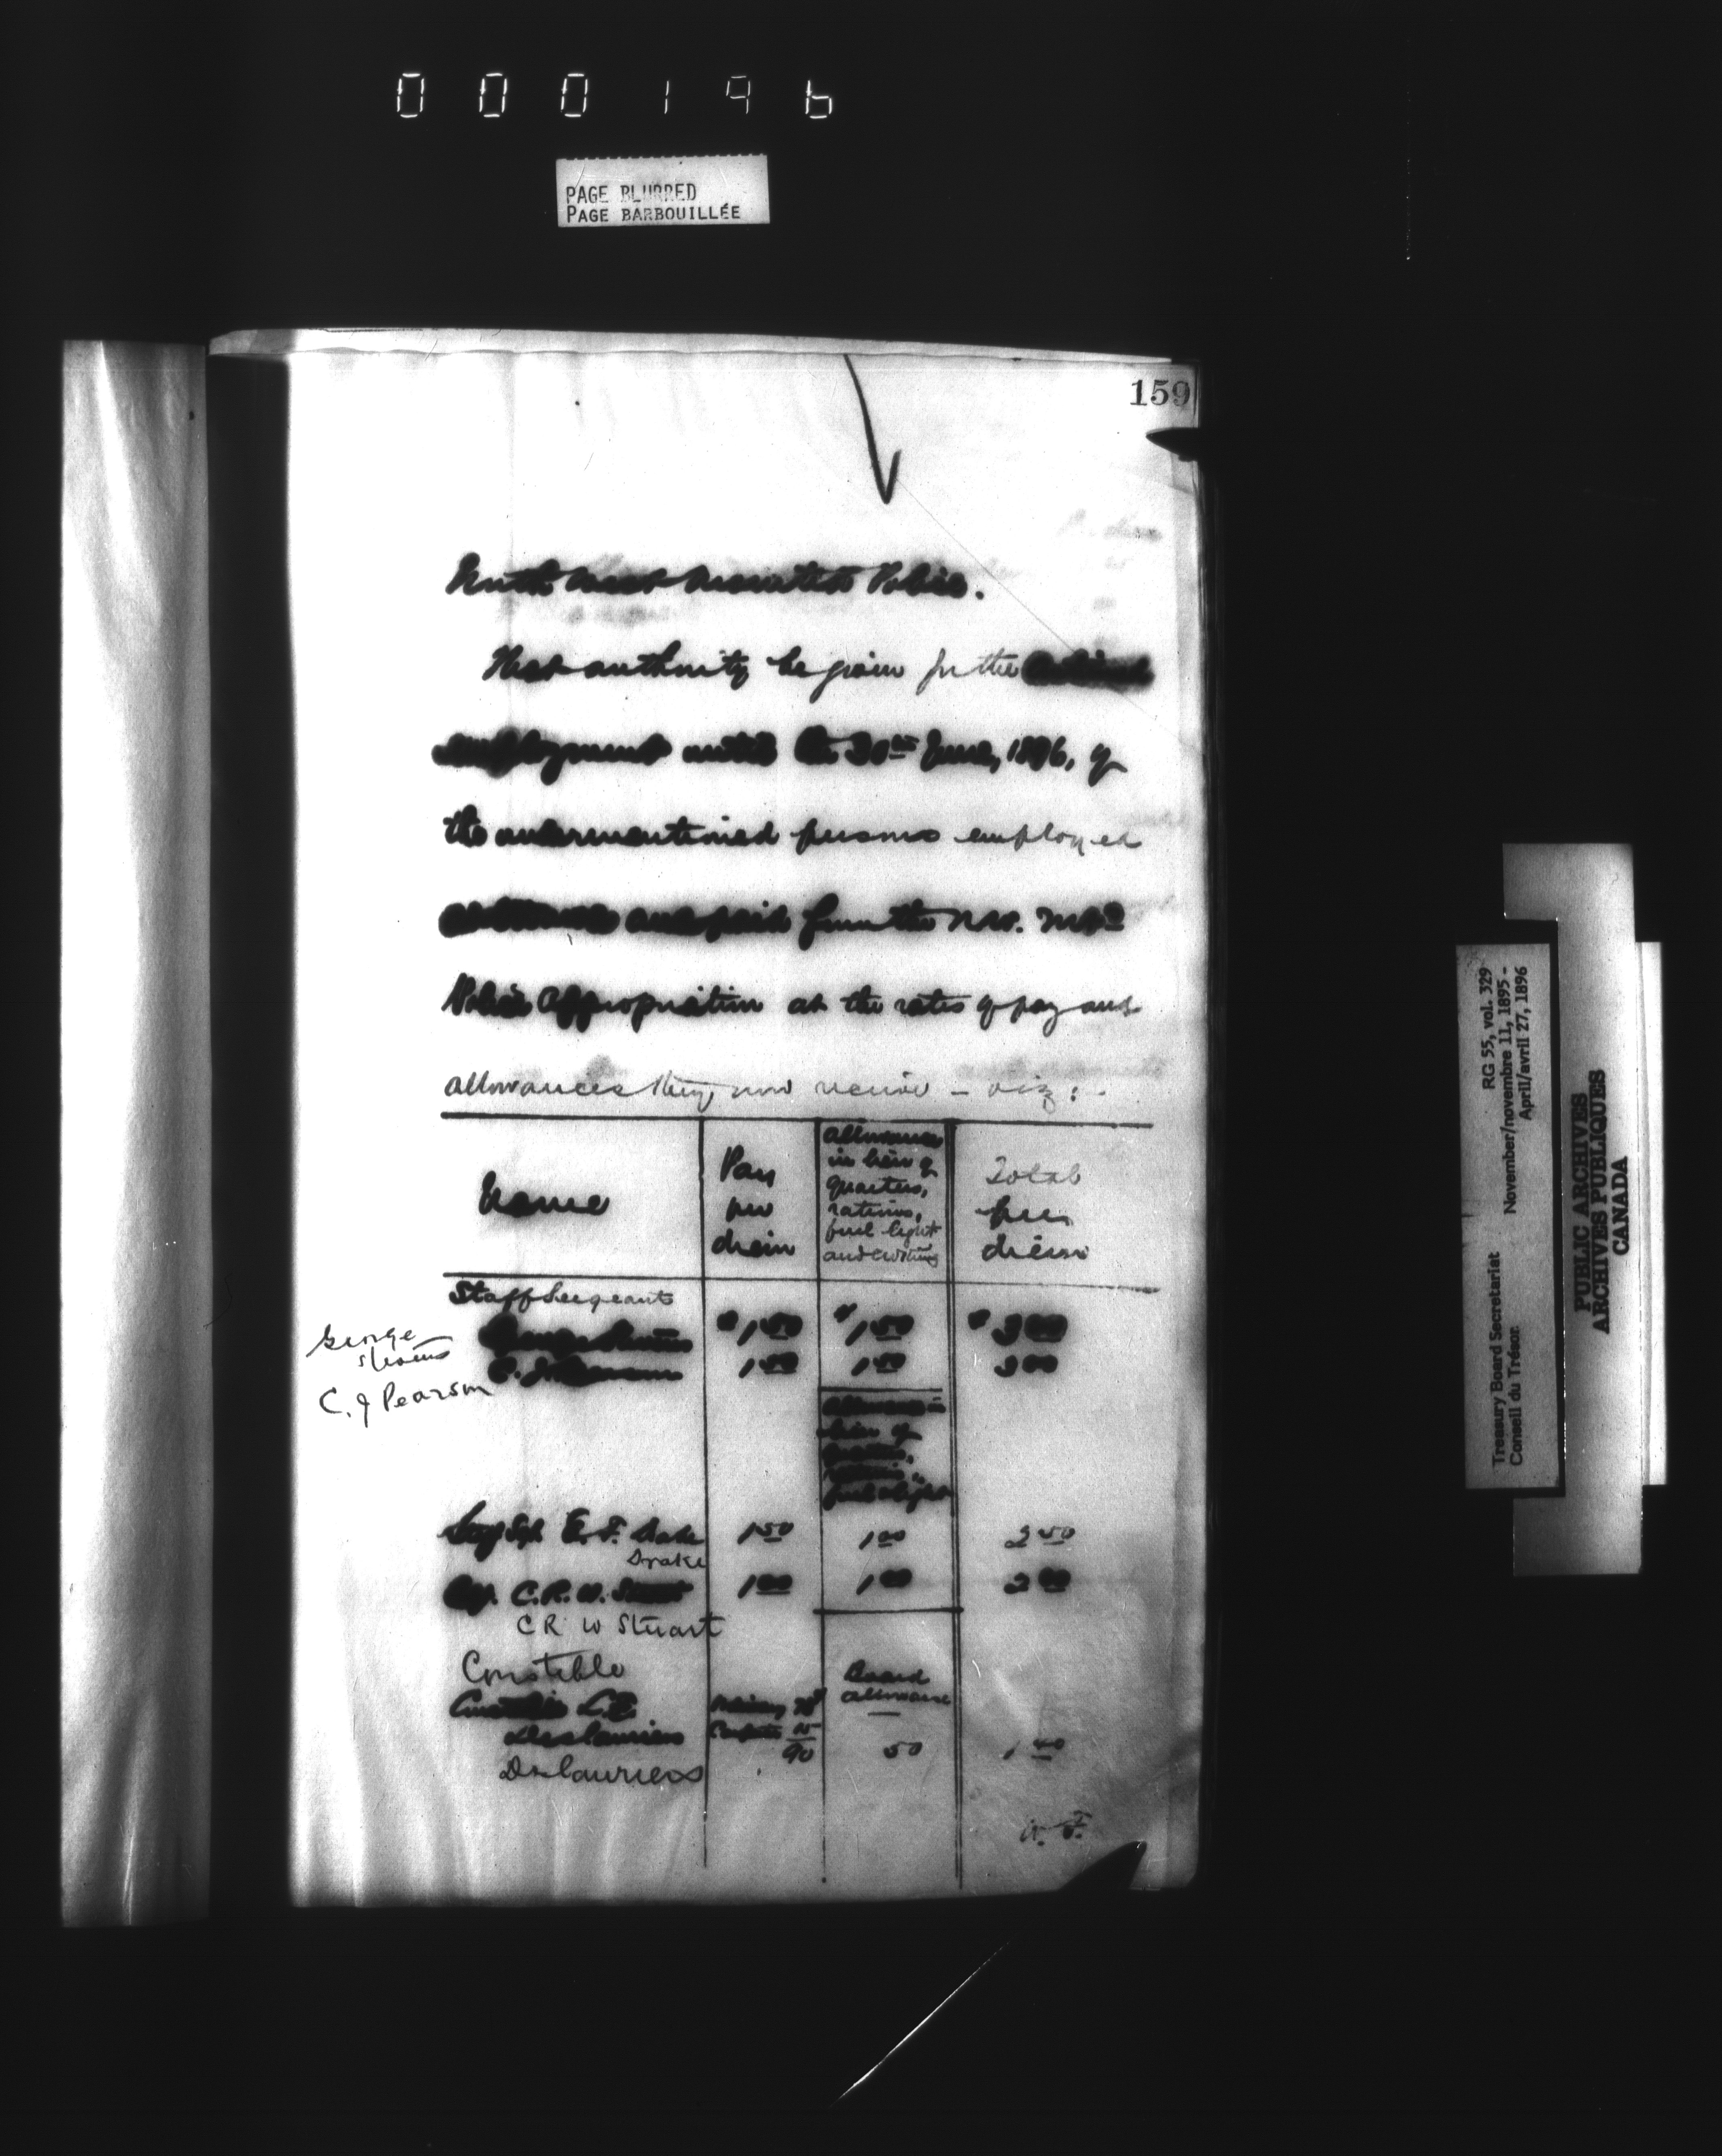 000196
PAGE BLURRED
PAGE BARBOUILLÉE
159
North West Mounted Police.
That authority be given for the
employment until the 30th June, 1896, of
the undermentioned persons employed
and paid from the N.W. M
Police Appropriation at the rates of pay and
allowances they now receive - viz:
Name
Pay
per
diem
Allowance
in lieu of
quarters,
rations,
fuel light
and clothing
Total
per
diem
Staff Sergeants
George $1 50 $1 50 $3 00
George
C. J. Pearson 1 50 1 50 3 00
C. J Pearson
Allowance in
lieu of
quarters,
rations,
fuel & light
Staff Sgt. E. F. Drake 1 50 1 00 2 50
Drake
C. R. W. Stuart 1 00 1 00 2 00
C R W Stuart
Constable
Board
allowance
Constable
Deslauriers 90 50 1 40
Deslauriers
RG 55, vol. 329
Treasury Board Secretariat November/novembre 11, 1895 -
Conseil du Trésor April/avril 27, 1896
PUBLIC ARCHIVES
ARCHIVES PUBLIQUES
CANADA